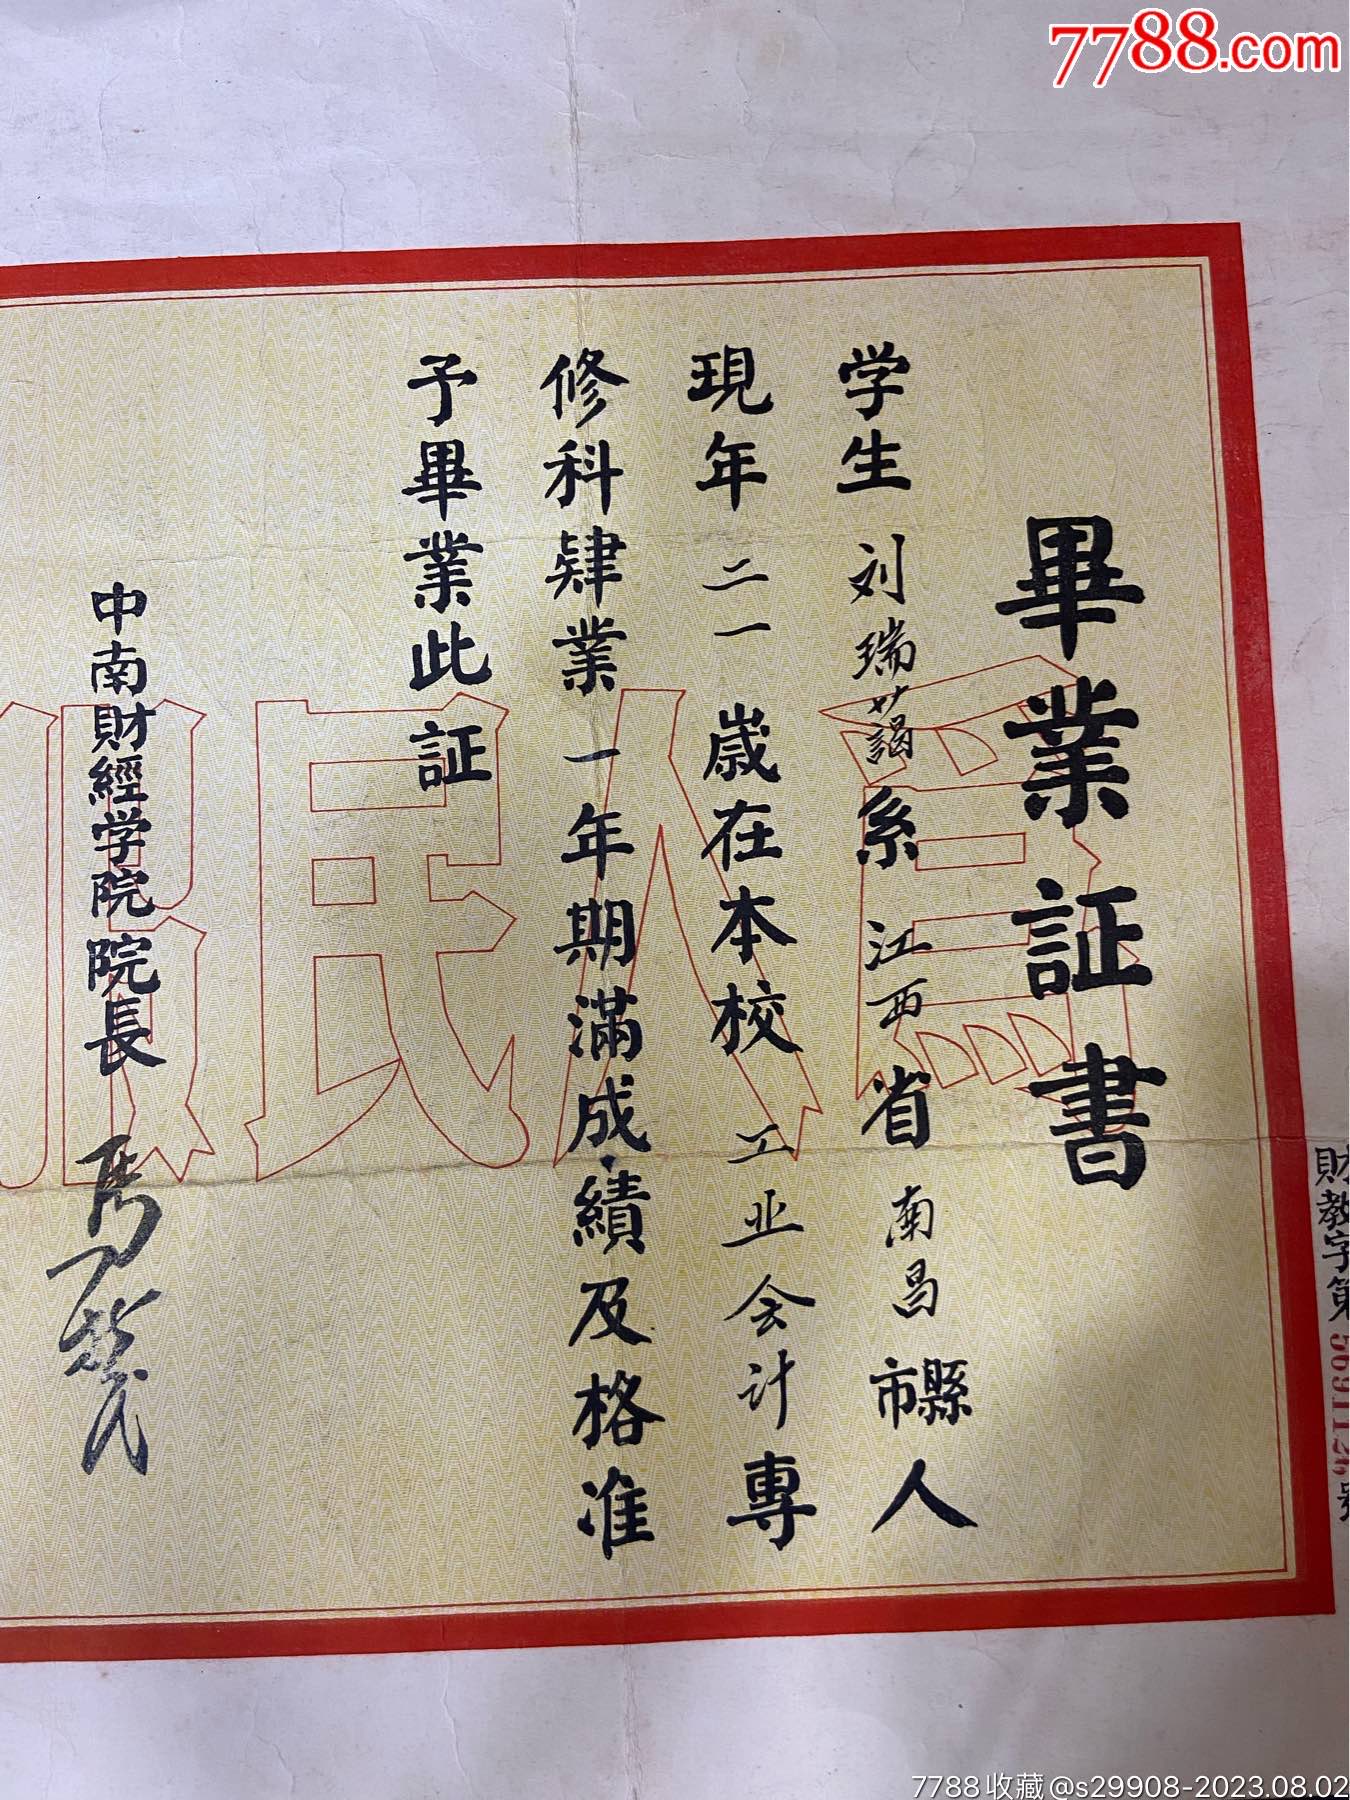 7788.com
畢業証書
学生刘瑞蔼系江西省南昌市縣人
現年二一歲在本校工业会计専
修科肄業一年期滿成績及格准
予畢業此証
中南財經学院院長
為人民服
財教字第5691126号
7788收藏@s29908-2023.08.02